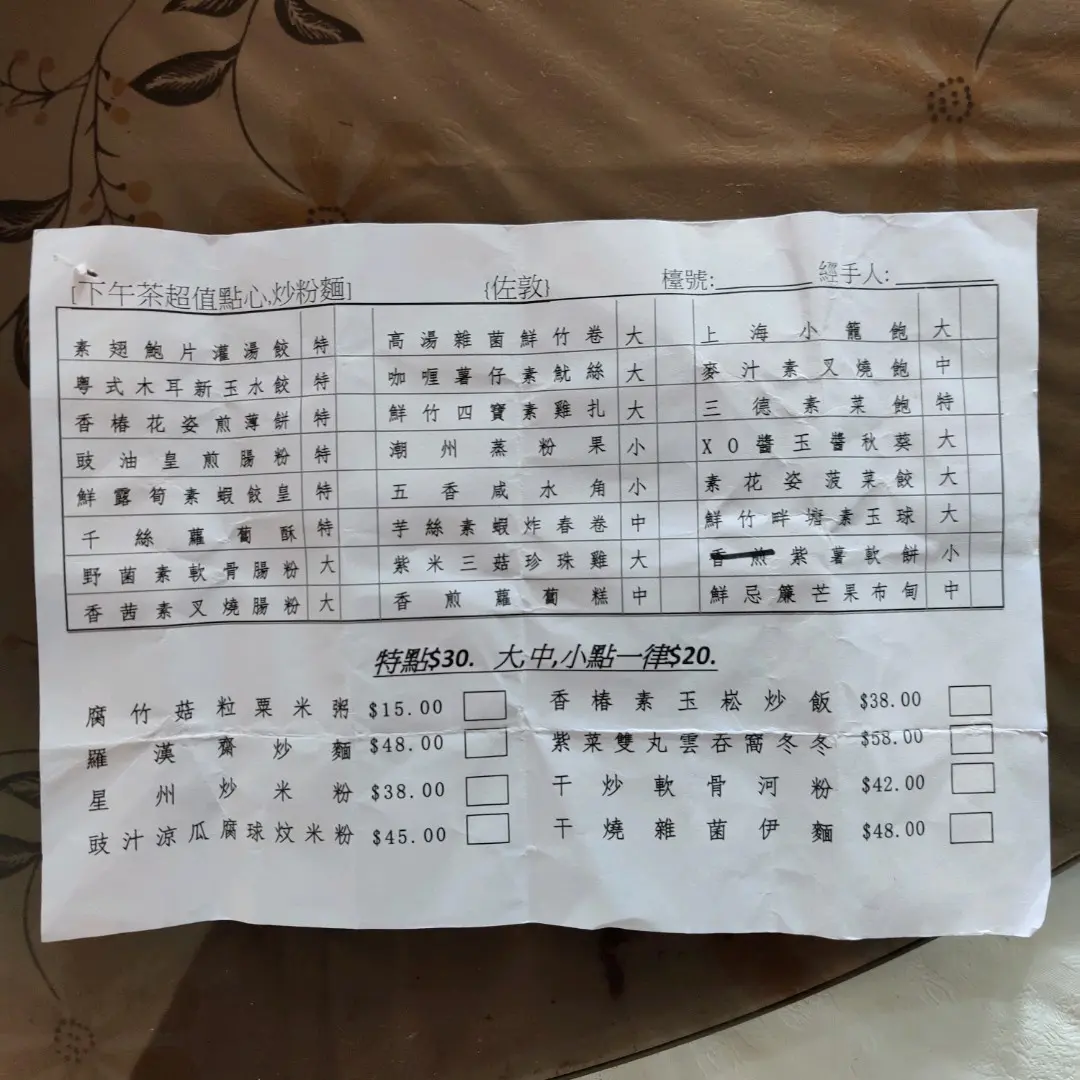 [下午茶超值點心,炒粉麵] {佐敦} 檯號:______ 經手人:______
素翅鮑片灌湯餃 特 高湯雜菌鮮竹卷 大 上海小籠飽 大
粵式木耳新玉水餃 特 咖喱薯仔素魷絲 大 麥汁素叉燒飽 中
香椿花姿煎薄餅 特 鮮竹四寶素雞扎 大 三德素菜飽 特
豉油皇煎腸粉 特 潮州蒸粉果 小 XO醬玉醬秋葵 大
鮮露筍素蝦餃皇 特 五香咸水角 小 素花姿菠菜餃 大
千絲蘿蔔酥 特 芋絲素蝦炸春卷 中 鮮竹畔塘素玉球 大
野菌素軟骨腸粉 大 紫米三菇珍珠雞 大 香煎紫薯軟餅 小
香茜素叉燒腸粉 大 香煎蘿蔔糕 中 鮮忌簾芒果布甸 中
特點$30. 大,中,小點一律$20.
腐竹菇粒粟米粥 $15.00 香椿素玉崧炒飯 $38.00
羅漢齋炒麵 $48.00 紫菜雙丸雲吞窩冬冬 $58.00
星州炒米粉 $38.00 干炒軟骨河粉 $42.00
豉汁涼瓜腐球炆米粉 $45.00 干燒雜菌伊麵 $48.00